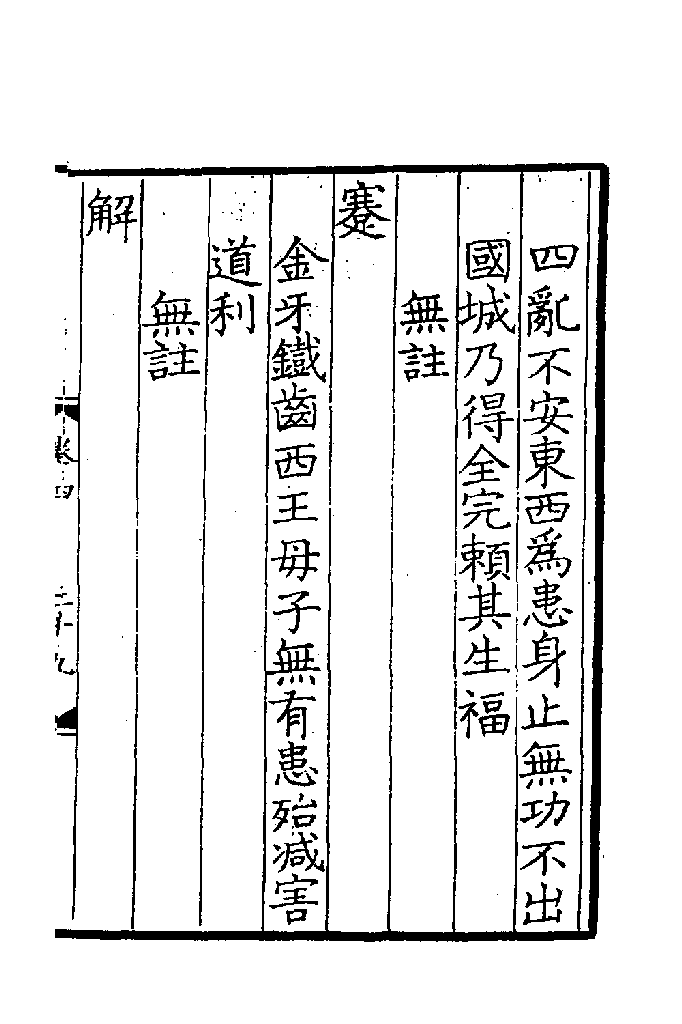 四亂不安東西爲患身止無功不出
國城乃得全完賴其生福
無註
蹇
金牙鐵齒西王母子無有患殆减害
道利
無註
解
卷四
二十九